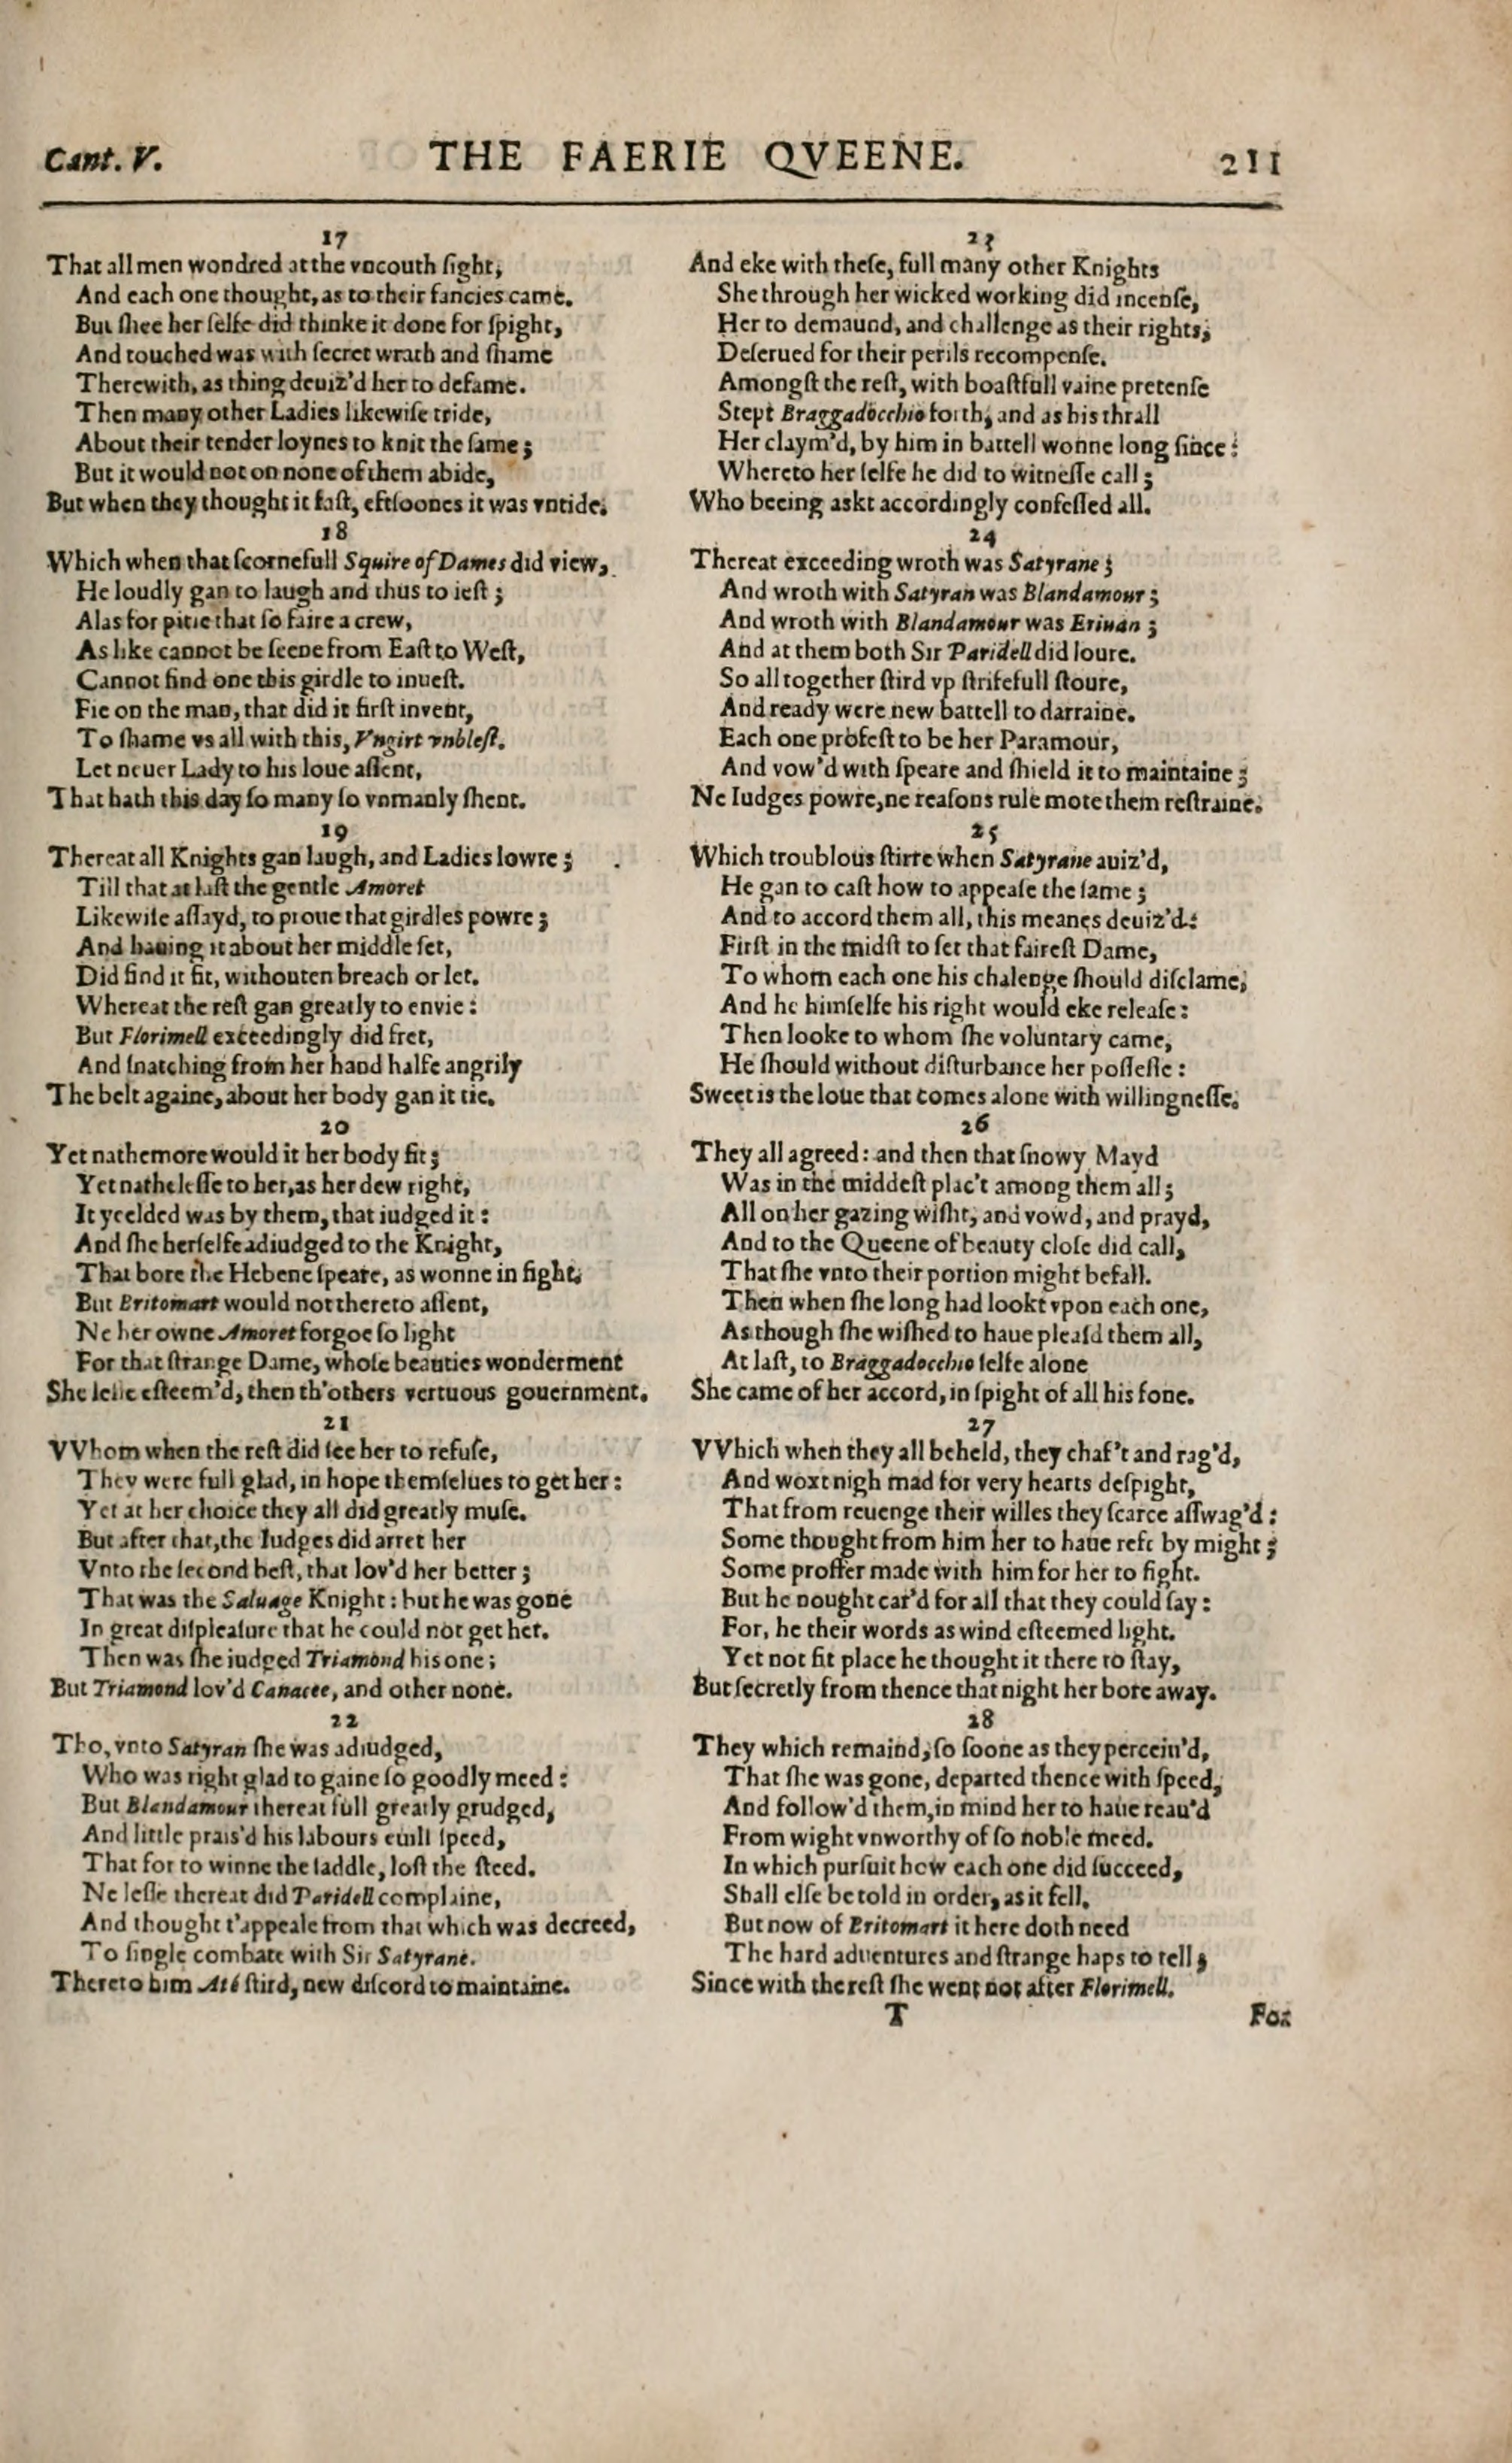 Cant. V.
THE FAERIE QVEENE.
211
17
That all men wondred at the vncouth ſight,
And each one thought, as to their fancies came.
But ſhee her ſelfe did thinke it done for ſpight,
And touched was with ſecret wrath and ſhame
Therewith, as thing deuiz'd her to defame.
Then many other Ladies likewiſe tride,
About their tender loynes to knit the ſame;
But it would not on none of them abide,
But when they thought it faſt, eftſoones it was vntide.
18
Which when that ſcornefull Squire of Dames did view,
He loudly gan to laugh and thus to ieſt;
Alas for pitie that ſo faire a crew,
As like cannot be ſeene from Eaſt to Weſt,
Cannot find one this girdle to inueſt.
Fie on the man, that did it firſt invent,
To ſhame vs all with this, Vngirt vnbleſt.
Let neuer Lady to his loue aſſent,
That hath this day ſo many ſo vnmanly ſhent.
19
Thereat all Knights gan laugh, and Ladies lowre;
Till that at laſt the gentle Amoret
Likewiſe aſſayd, to proue that girdles powre;
And hauing it about her middle ſet,
Did find it fit, withouten breach or let.
Whereat the reſt gan greatly to envie:
But Florimell exceedingly did fret,
And ſnatching from her hand halfe angrily
The belt againe, about her body gan it tie.
20
Yet nathemore would it her body fit;
Yet natheleſſe to her, as her dew right,
It yeelded was by them, that iudged it:
And ſhe herſelfe adiudged to the Knight,
That bore the Hebene ſpeare, as wonne in fight.
But Britomart would not thereto aſſent,
Ne her owne Amoret forgoe ſo light
For that ſtrange Dame, whoſe beauties wonderment
She leſſe eſteem'd, then th'others vertuous gouernment.
21
VVhom when the reſt did ſee her to refuſe,
They were full glad, in hope themſelues to get her:
Yet at her choice they all did greatly muſe.
But after that, the Iudges did arret her
Vnto the ſecond beſt, that lov'd her better;
That was the Saluage Knight: but he was gone
In great diſpleaſure that he could not get her.
Then was ſhe iudged Triamond his one;
But Triamond lov'd Canacee, and other none.
22
Tho, vnto Satyran ſhe was adiudged,
Who was right glad to gaine ſo goodly meed:
But Blandamour thereat full greatly grudged,
And little prais'd his labours euill ſpeed,
That for to winne the ſaddle, loſt the ſteed.
Ne leſſe thereat did Paridell complaine,
And thought t'appeale from that which was decreed,
To ſingle combatt with Sir Satyrane.
Thereto him Até ſtird, new diſcord to maintaine.
23
And eke with theſe, full many other Knights
She through her wicked working did incenſe,
Her to demaund, and challenge as their rights,
Deſerued for their perils recompenſe.
Amongſt the reſt, with boaſtfull vaine pretenſe
Stept Braggadocchio forth, and as his thrall
Her claym'd, by him in battell wonne long ſince:
Whereto her ſelfe he did to witneſſe call;
Who beeing askt accordingly confeſſed all.
24
Thereat exceeding wroth was Satyrane;
And wroth with Satyran was Blandamour;
And wroth with Blandamour was Eriuan;
And at them both Sir Paridell did loure.
So all together ſtird vp ſtrifefull ſtoure,
And ready were new battell to darraine.
Each one profeſt to be her Paramour,
And vow'd with ſpeare and ſhield it to maintaine;
Ne Iudges powre, ne reaſons rule mote them reſtraine.
25
Which troublous ſtirre when Satyrane auiz'd,
He gan to caſt how to appeaſe the ſame;
And to accord them all, this meanes deuiz'd:
Firſt in the midſt to ſet that faireſt Dame,
To whom each one his chalenge ſhould diſclame,
And he himſelfe his right would eke releaſe:
Then looke to whom ſhe voluntary came,
He ſhould without diſturbance her poſſeſſe:
Sweet is the loue that comes alone with willingneſſe.
26
They all agreed: and then that ſnowy Mayd
Was in the middeſt plac't among them all;
All on her gazing wiſht, and vowd, and prayd,
And to the Queene of beauty cloſe did call,
That ſhe vnto their portion might befall.
Then when ſhe long had lookt vpon each one,
As though ſhe wiſhed to haue pleaſd them all,
At laſt, to Braggadocchio ſelfe alone
She came of her accord, in ſpight of all his fone.
27
VVhich when they all beheld, they chaf't and rag'd,
And woxt nigh mad for very hearts deſpight,
That from reuenge their willes they ſcarce aſſwag'd:
Some thought from him her to haue reft by might;
Some proffer made with him for her to fight.
But he nought car'd for all that they could ſay:
For, he their words as wind eſteemed light.
Yet not fit place he thought it there to ſtay,
But ſecretly from thence that night her bore away.
28
They which remaind, ſo ſoone as they perceiu'd,
That ſhe was gone, departed thence with ſpeed,
And follow'd them, in mind her to haue reau'd
From wight vnworthy of ſo noble meed.
In which purſuit how each one did ſucceed,
Shall elſe be told in order, as it fell.
But now of Britomart it here doth need
The hard aduentures and ſtrange haps to tell;
Since with the reſt ſhe went not after Florimell.
T
For